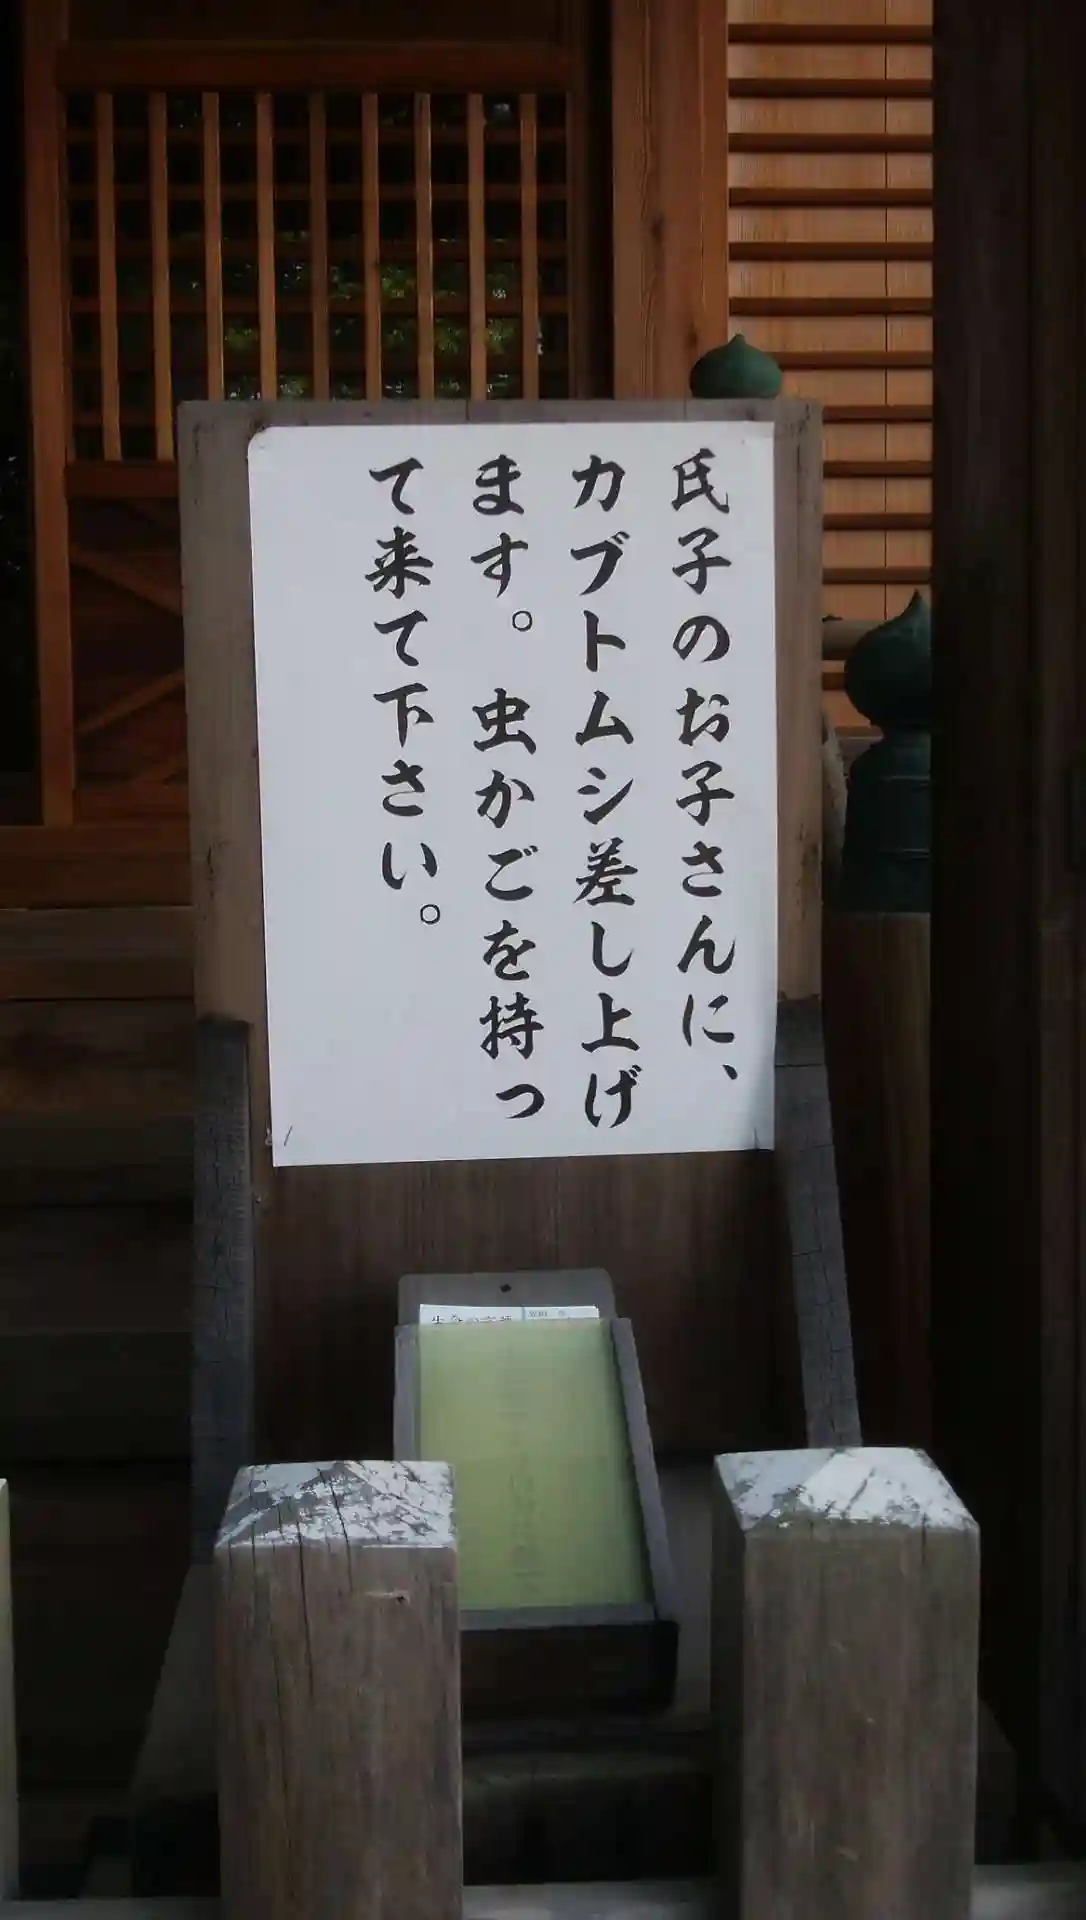 氏子のお子さんに、
カブトムシ差し上げ
ます。虫かごを持っ
て来て下さい。